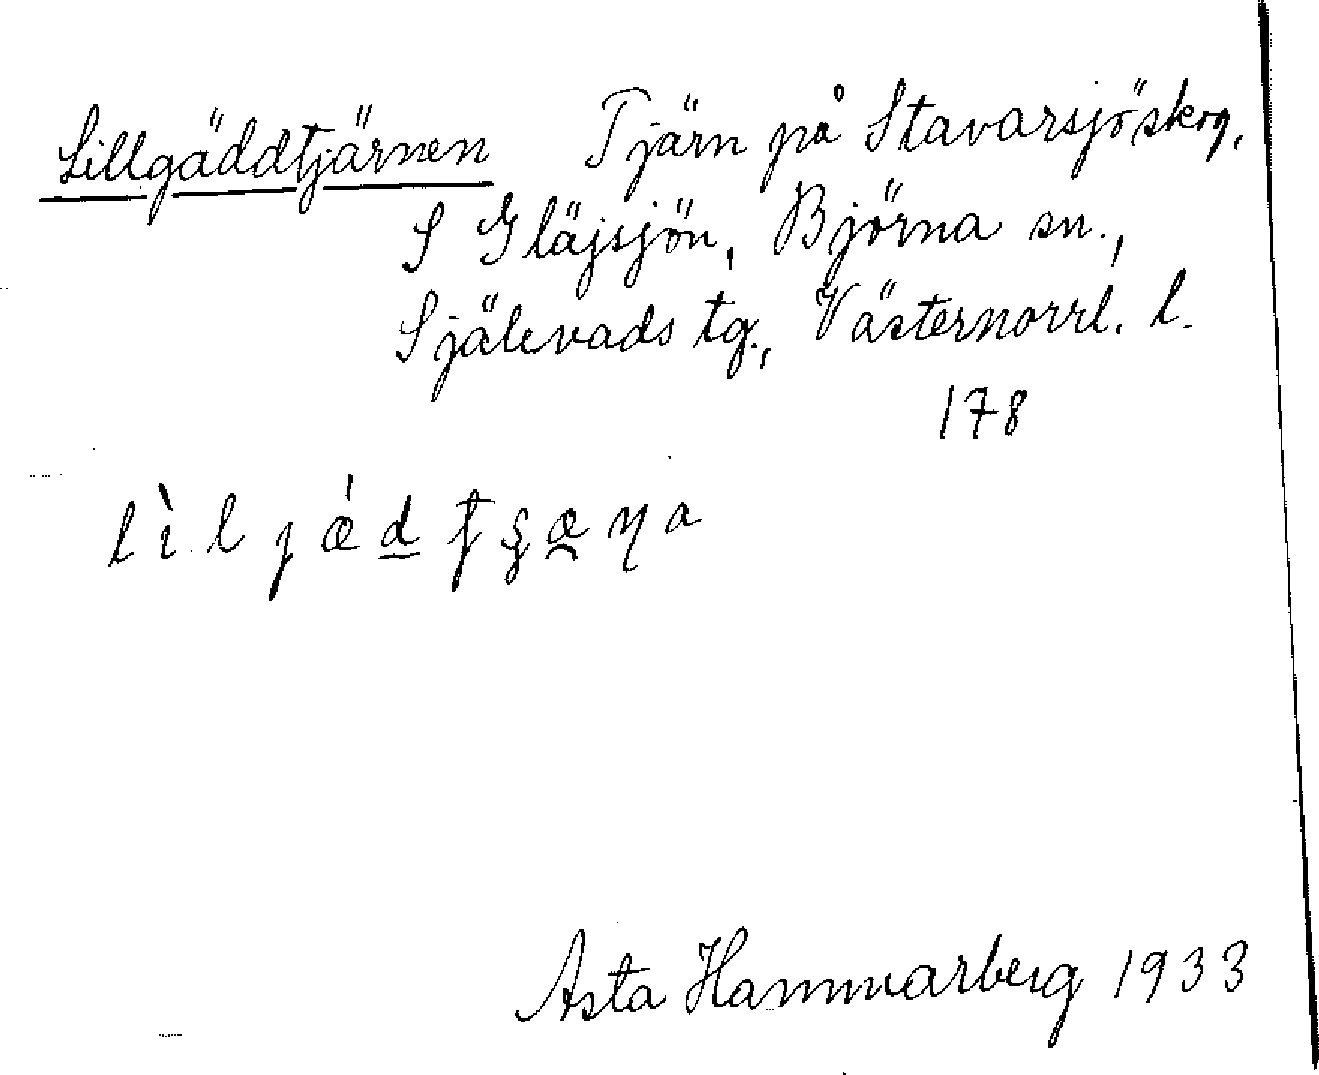 Lillgäddtjärnen Tjärn på Stavarsjöskog,
S Gläjsjön, Björna sn.,
Själevads tg., Västernorrl. l.
178
Asta Hammarberg 1933